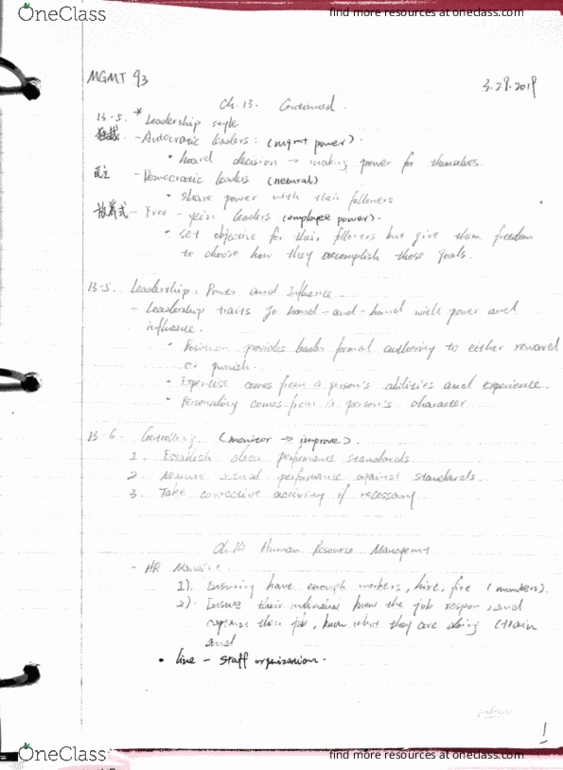 OneClass
find more resources at oneclass.com
MGMT 93
3.29.2019
Ch.13. Continued.
13-5. * Leadership style
独裁 - Autocratic leaders: (mgmt power).
• hoard decision → making power for themselves.
民主 - Democratic leaders (neutral)
• share power with their followers
放养式 - Free-rein leaders (employee power).
• set objective for their followers but give them freedom
to choose how they accomplish those goals.
13-5. Leadership: Power and Influence
- Leadership traits go hand-and-hand with power and
influence.
• Position provides leader formal authority to either reward
or punish.
• Expertise comes from a person's abilities and experience.
• Personality comes from a person's character
13-6. Controlling (monitor → improve).
1. Establish clear performance standards
2. Measure actual performance against standards.
3. Take corrective if necessary
Human Resource Management
- HR
1). Ensuring have enough workers, hire, fire (numbers).
2). Ensure their individual know the job respon, and
their job, know what they are doing (train
and
• line - staff organization.
1
OneClass
find more resources at oneclass.com